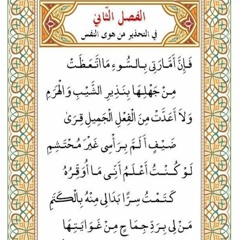 الفصل الثاني
في التحذير من هوى النفس
فَإِنَّ أَمَّارَتِي بِالسُّوءِ مَا اتَّعَظَتْ
مِنْ جَهْلِهَا بِنَذِيرِ الشَّيْبِ وَالْهَرَمِ
وَلَا أَعَدَّتْ مِنَ الْفِعْلِ الْجَمِيلِ قِرَى
ضَيْفٍ أَلَمَّ بِرَأْسِي غَيْرَ مُحْتَشِمِ
لَوْ كُنْتُ أَعْلَمُ أَنِّي مَا أُوَقِّرُهُ
كَتَمْتُ سِرًّا بَدَا لِي مِنْهُ بِالْكَتَمِ
مَنْ لِي بِرَدِّ جِمَاحٍ مِنْ غَوَايَتِهَا